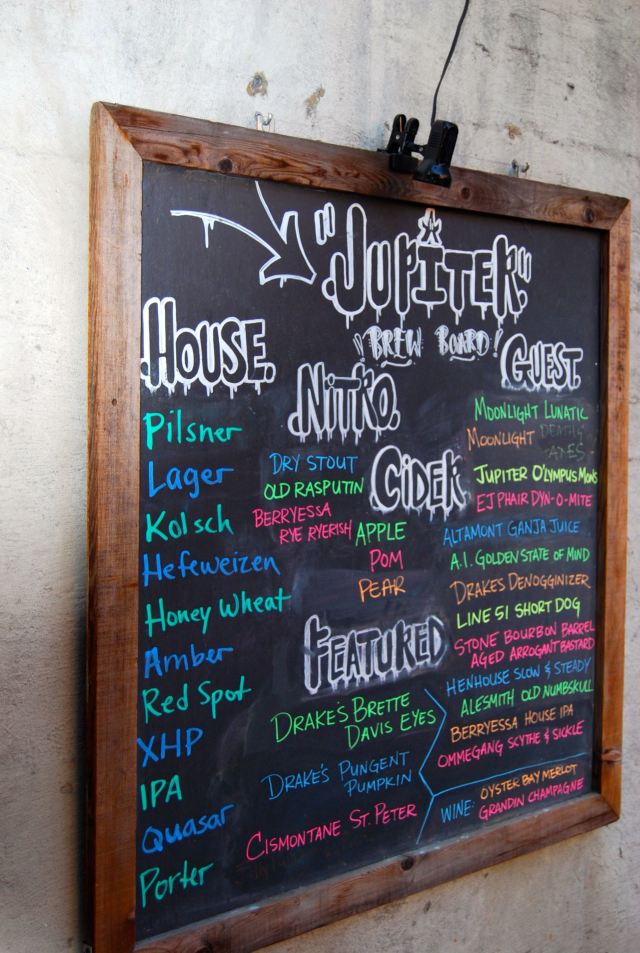 "JUPITER"
"BREW BOARD!
HOUSE.
Pilsner
Lager
Kolsch
Hefeweizen
Honey Wheat
Amber
Red Spot
XHP
IPA
Quasar
Porter
NITRO.
DRY STOUT
OLD RASPUTIN
BERRYESSA
RYE RYERISH
CIDER
APPLE
POM
PEAR
FEATURED
DRAKE'S BRETTE
DAVIS EYES
DRAKE'S PUNGENT
PUMPKIN
CISMONTANE ST. PETER
GUEST.
MOONLIGHT LUNATIC
MOONLIGHT DEATH &
TAXES
JUPITER O'LYMPUS MONS
EJ PHAIR DYN-O-MITE
ALTAMONT GANJA JUICE
A.I. GOLDEN STATE OF MIND
DRAKE'S DENOGGINIZER
LINE 51 SHORT DOG
STONE BOURBON BARREL
AGED ARROGANT BASTARD
HENHOUSE SLOW & STEADY
ALESMITH OLD NUMBSKULL
BERRYESSA HOUSE IPA
OMMEGANG SCYTHE & SICKLE
WINE: OYSTER BAY MERLOT
GRANDIN CHAMPAGNE